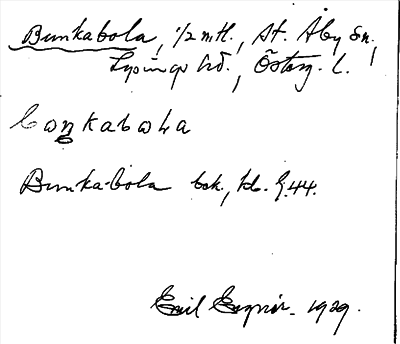 Bunkabola, 1/2 mtl., St. Åby sn,
Lysings hd., Österg. l.
boŋkabωλa
Bunka-bola bsk., Hd. G.44.
Emil 1929.